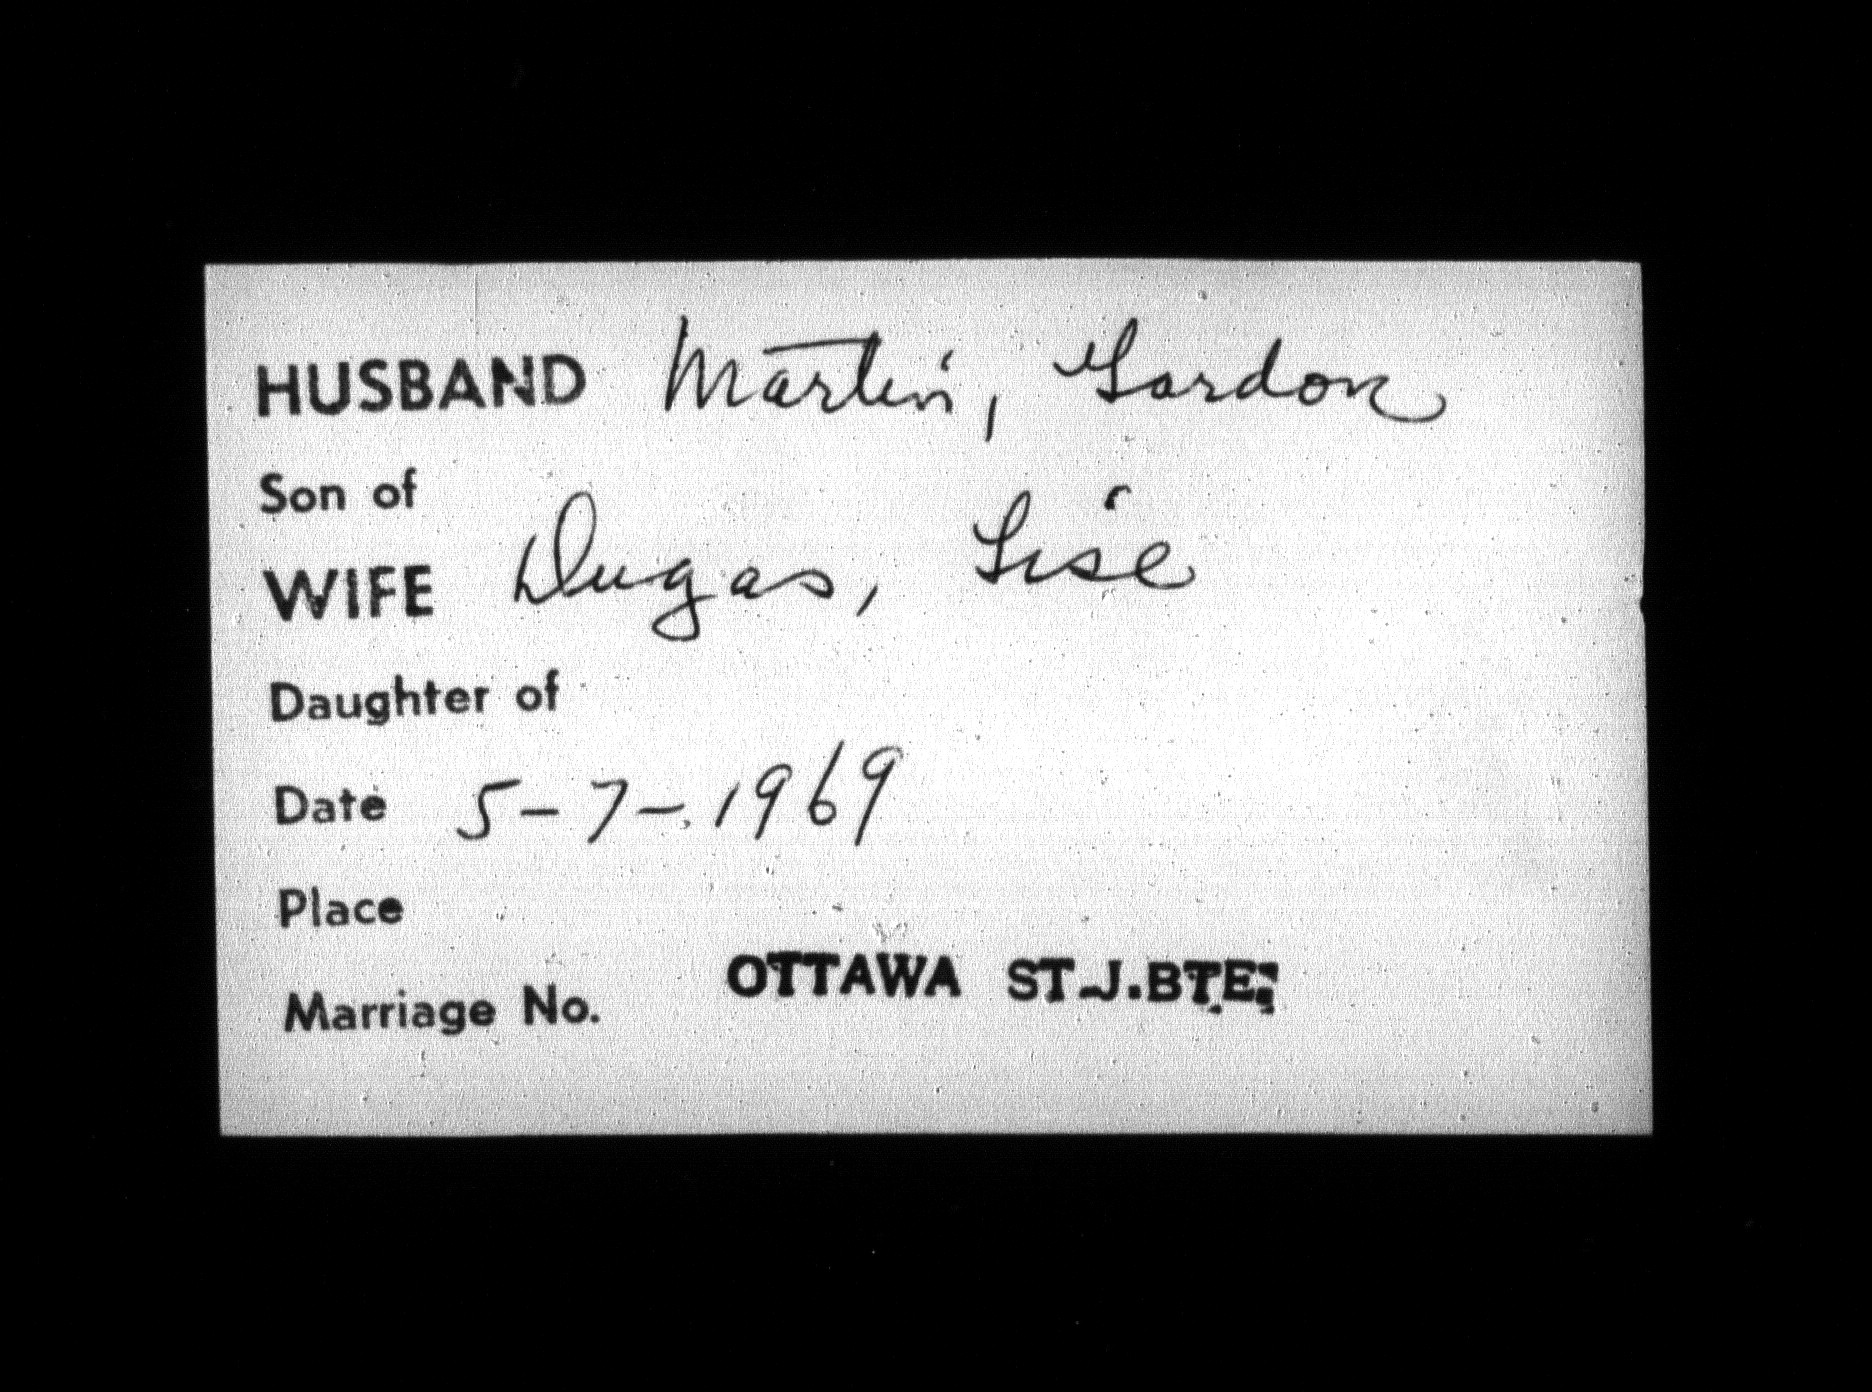 HUSBAND Martin, Gordon
Son of
WIFE Dugas, Lise
Daughter of
Date 5-7-1969
Place
OTTAWA ST.J.BTE.
Marriage No.